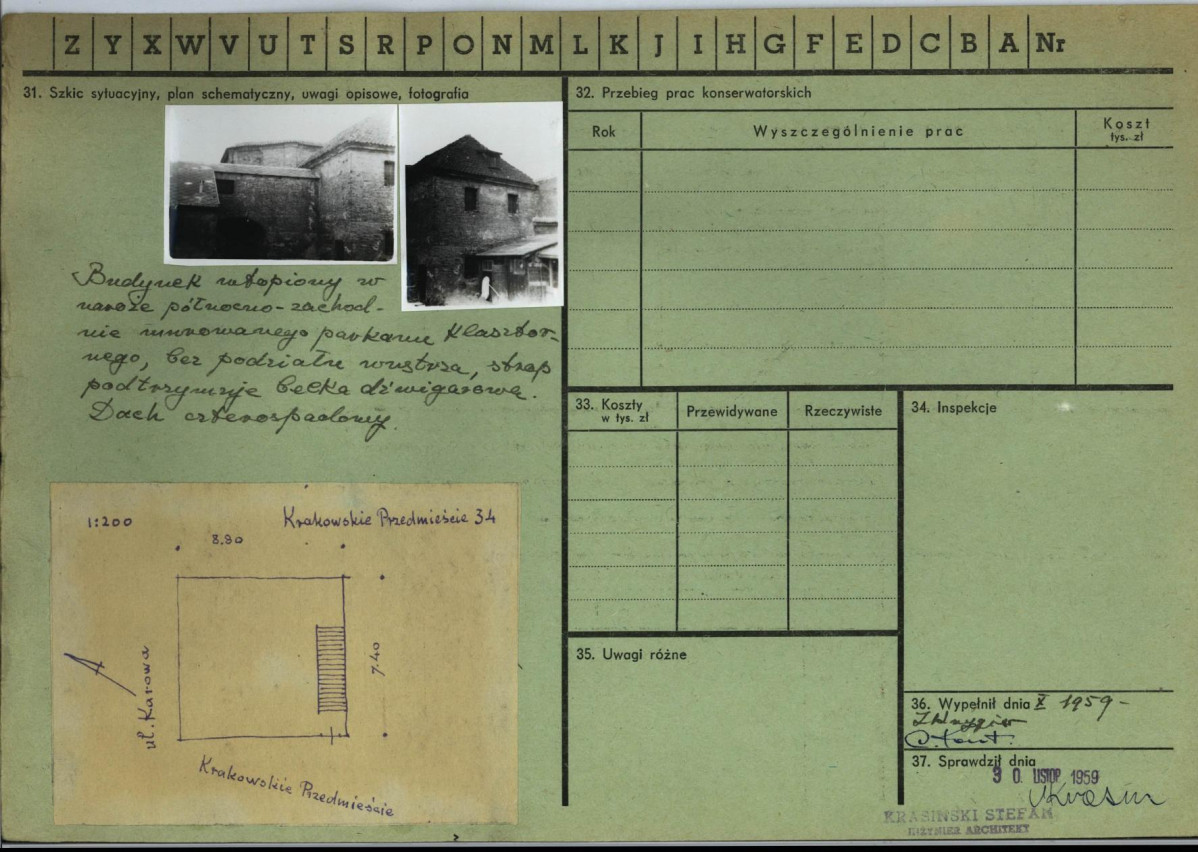 Z Y X W V U T S R P O N M L K J I H G F E D C B A Nr
31. Szkic sytuacyjny, plan schematyczny, uwagi opisowe, fotografia
Budynek wtopiony w
naroże północno-zachod-
nie murowanego parkanu klasztor-
nego, bez podziału wnętrza, strop
podtrzymuje belka dźwigarowa.
Dach czterospadowy.
1:200
Krakowskie Przedmieście 34
8.90
7.40
ul. Karowa
Krakowskie Przedmieście
32. Przebieg prac konserwatorskich
Rok
Wyszczególnienie prac
Koszt
tys. zł
33. Koszty
w tys. zł
Przewidywane
Rzeczywiste
34. Inspekcje
35. Uwagi różne
36. Wypełnił dnia X 1959-
37. Sprawdził dnia
30. LISTOP. 1959
KRASIŃSKI STEFAN
INŻYNIER ARCHITEKT